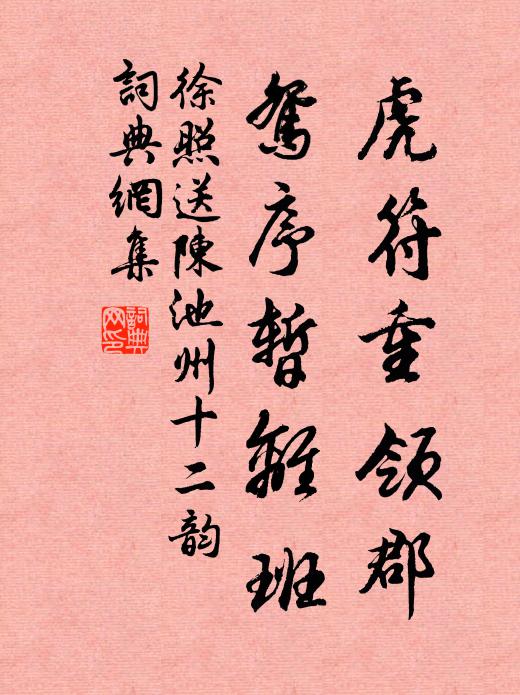 虎符重領郡
鴛序暫離班
徐照送陳池州十二韵
詞典網集
詞典
网印